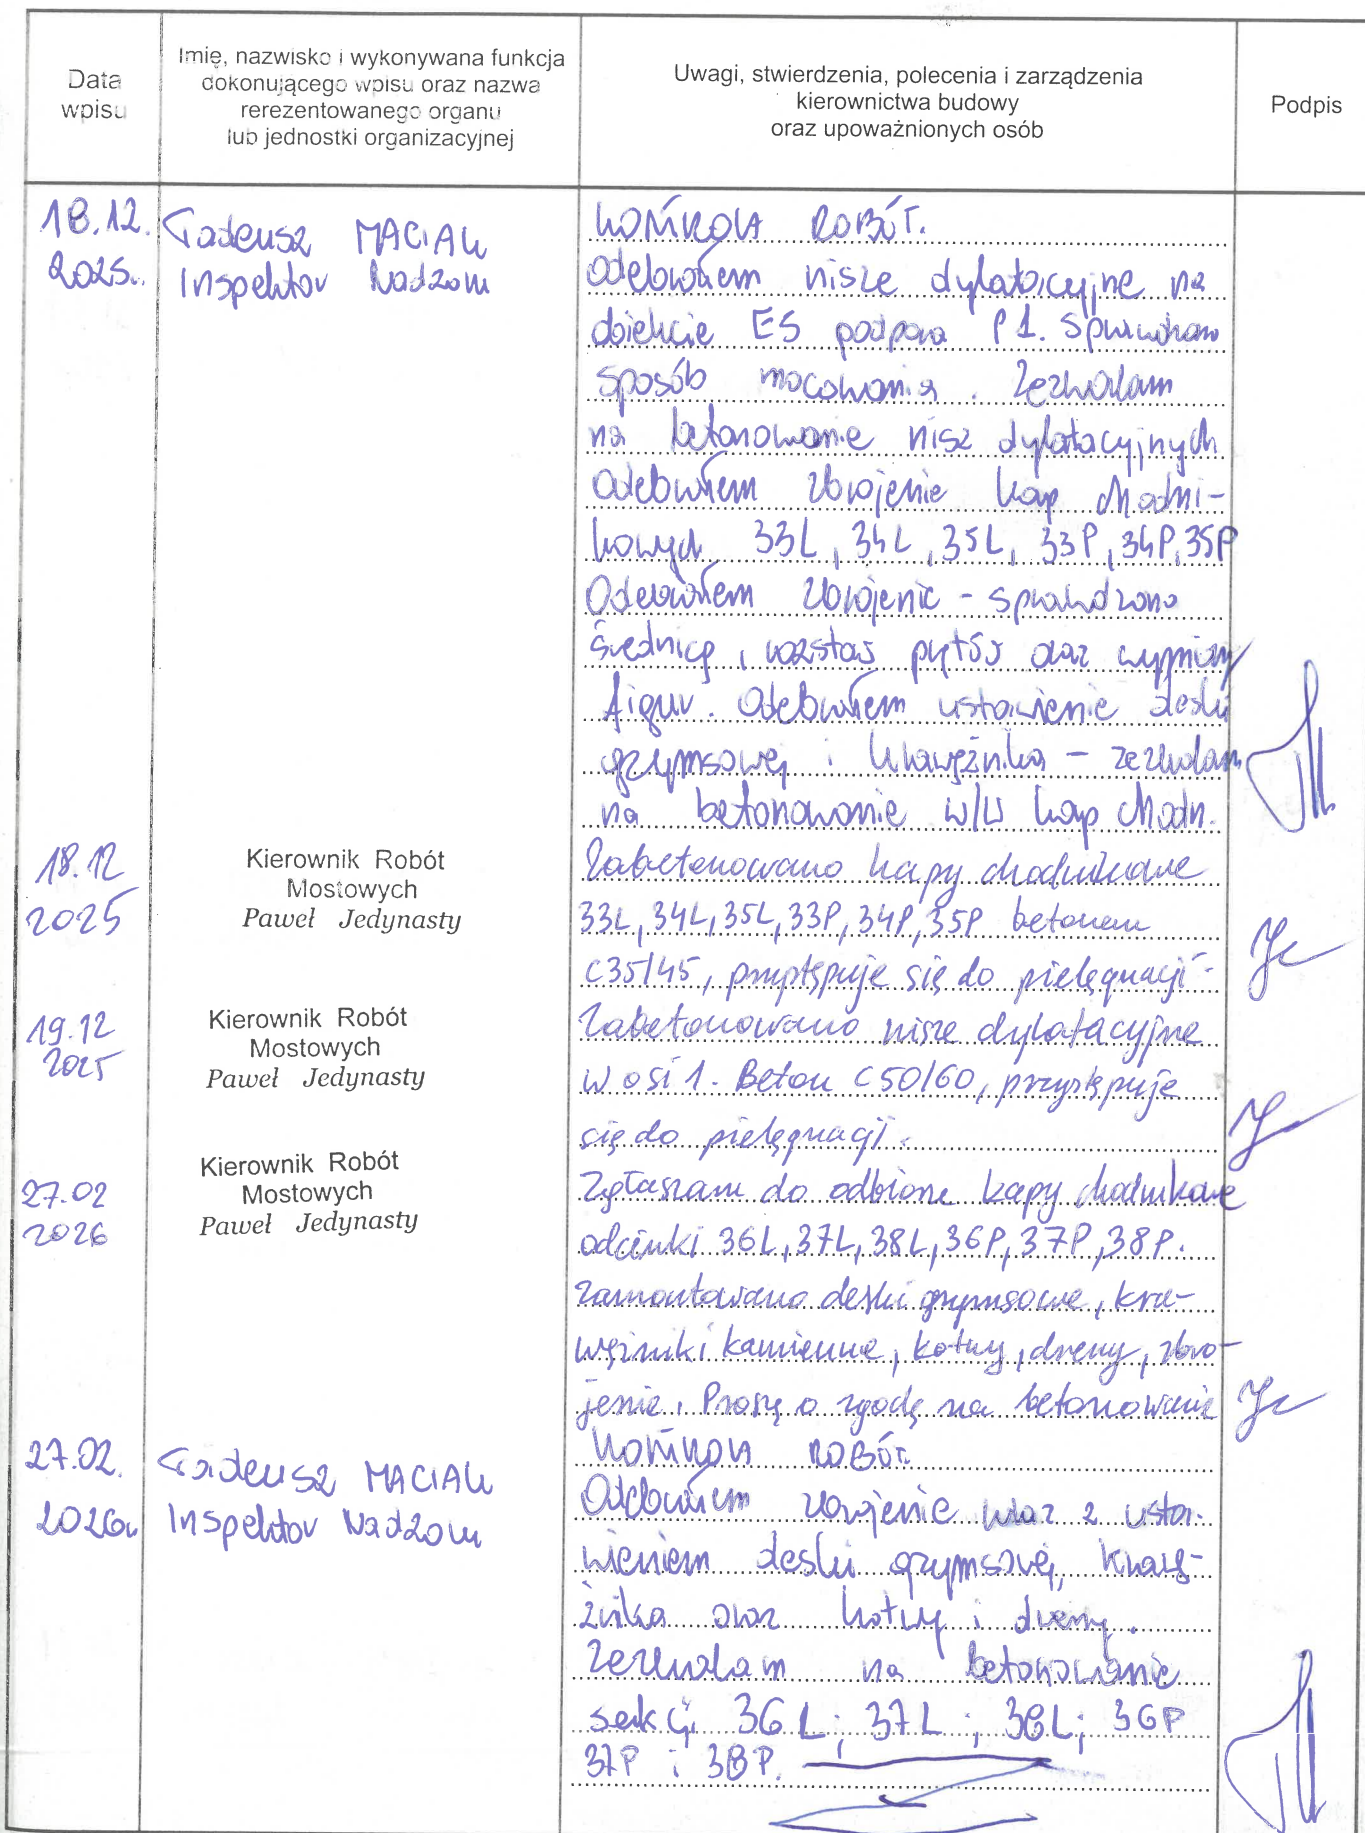 Data
wpisu
Imię, nazwisko i wykonywana funkcja
dokonującego wpisu oraz nazwa
rerezentowanego organu
lub jednostki organizacyjnej
Uwagi, stwierdzenia, polecenia i zarządzenia
kierownictwa budowy
oraz upoważnionych osób
Podpis
18.12.
2025r.
Tadeusz MACIAK
Inspektor Nadzoru
KONTROLA ROBÓT.
Odebrałem nisze dylatacyjne na
obiekcie E5 podpora P1. Sprawdzam
sposób mocowania. Zezwalam
na betonowanie nisz dylatacyjnych.
Odebrałem zbrojenie kap chodni-
kowych 33L, 34L, 35L, 33P, 34P, 35P
Odebrałem zbrojenie - sprawdzono
średnicę, rozstaw prętów oraz wymiary
figur. Odebrałem ustawienie deski
gzymsowej i krawężnika - zezwalam
na betonowanie w/w kap chodn.
18.12
2025
Kierownik Robót
Mostowych
Paweł Jedynasty
Zabetonowano kapy chodnikowe
33L, 34L, 35L, 33P, 34P, 35P betonem
C35/45, przystępuje się do pielęgnacji.
19.12
2025
Kierownik Robót
Mostowych
Paweł Jedynasty
Zabetonowano nisze dylatacyjne
w osi 1. Beton C50/60, przystępuje
się do pielęgnacji.
27.02
2026
Kierownik Robót
Mostowych
Paweł Jedynasty
Zgłaszam do odbioru kapy chodnikowe
odcinki 36L, 37L, 38L, 36P, 37P, 38P.
Zamontowano deski gzymsowe, kra-
wężniki kamienne, kotwy, dreny, zbro-
jenie. Proszę o zgodę na betonowanie
27.02.
2026r.
Tadeusz MACIAK
Inspektor Nadzoru
KONTROLA ROBÓT.
Odebrałem zbrojenie wraz z usta-
wieniem deski gzymsowej, krawę-
żnika oraz kotwy i dreny.
Zezwalam na betonowanie
sekcji 36L; 37L; 38L; 36P
37P i 38P.